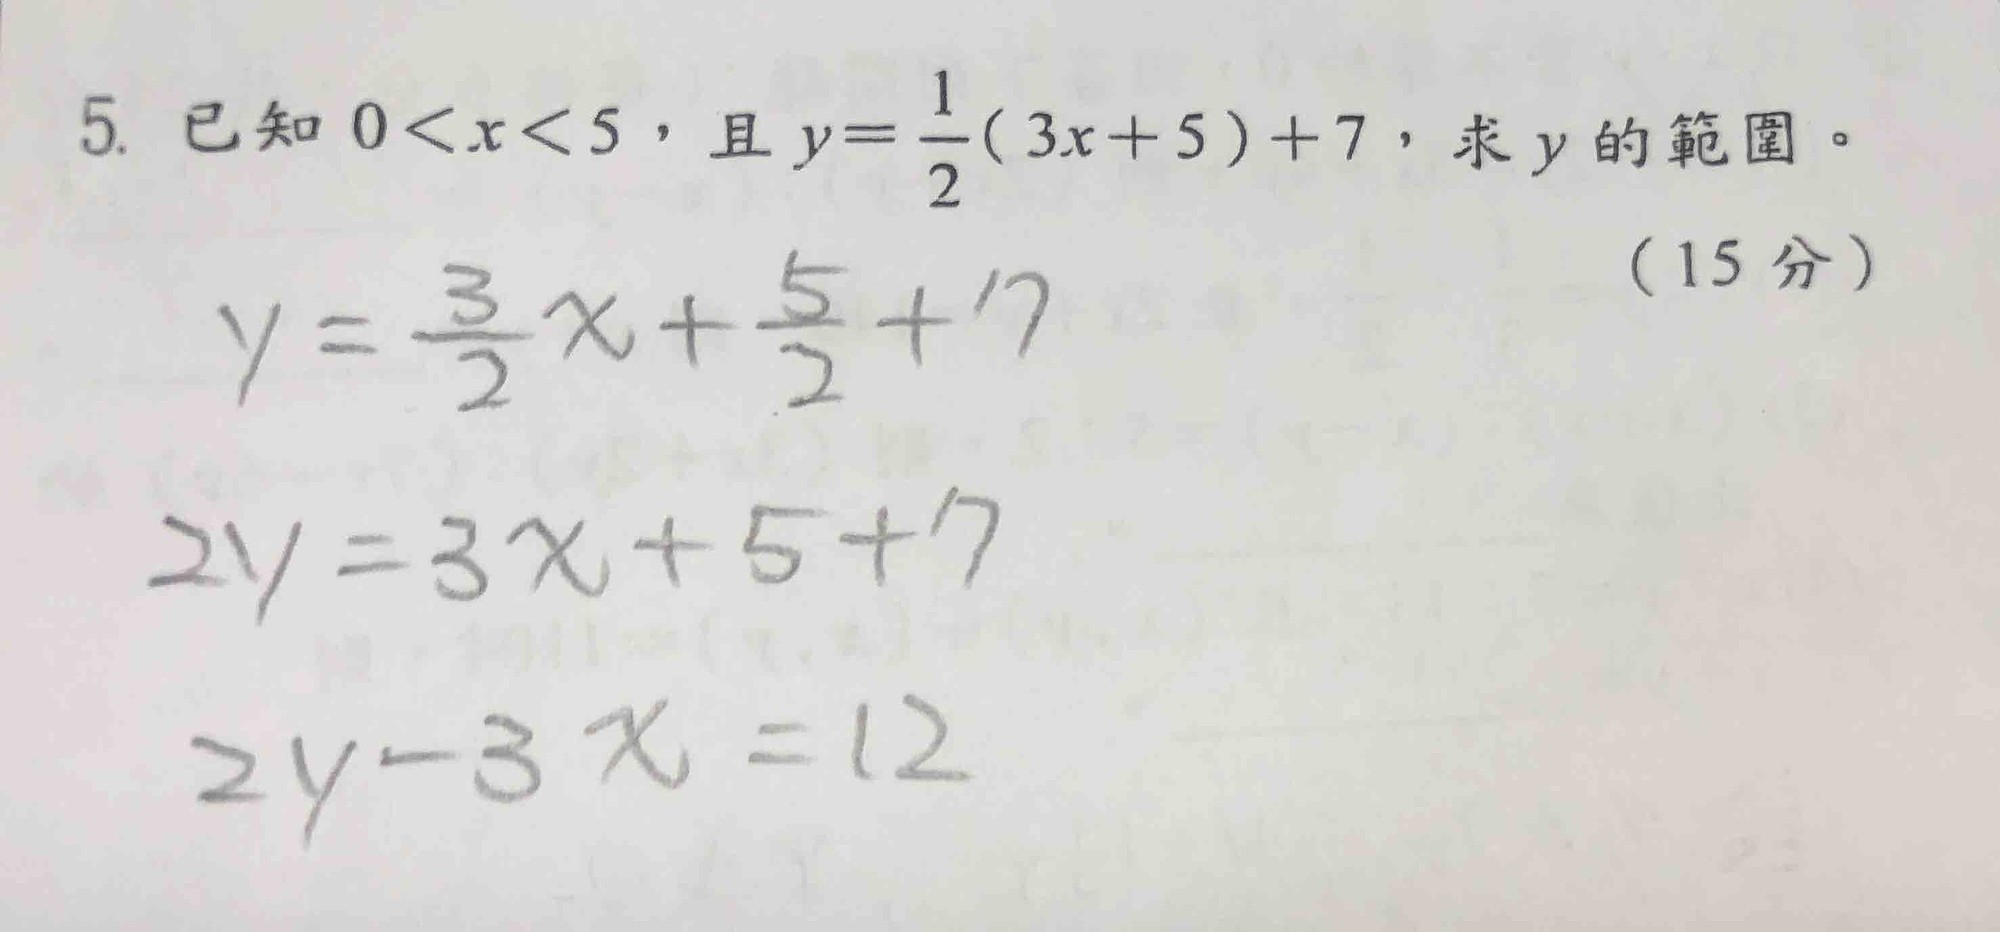 5. 已知 0<x<5，且 y=\frac{1}{2}(3x+5)+7，求 y 的範圍。
（15 分）
y=\frac{3}{2}x+\frac{5}{2}+7
2y=3x+5+7
2y-3x=12